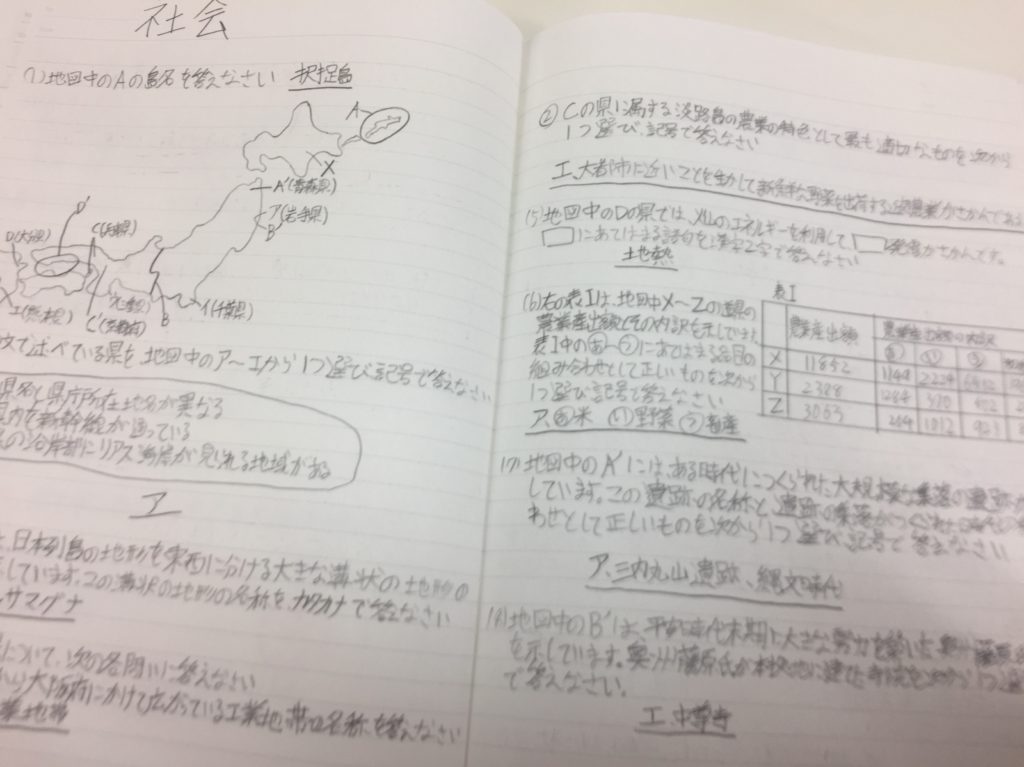 社会
(1)地図中のAの島名を答えなさい 択捉島
A
X
A'(青森県)
ア(岩手県)
B
D'
D(大分県)
C(兵庫県)
エ(島根県)
C'(京都府)
B
イ(千葉県)
文で述べている県を地図中のア〜エから1つ選び記号で答えなさい
県名と県庁所在地名が異なる
県内を新幹線が通っている
の沿岸部にリアス海岸が見られる地域がある
ア
、日本列島の地形を東西に分ける大きな溝状の地形の
しています。この溝状の地形の名称をカタカナで答えなさい
サマグナ
について、次の各問いに答えなさい
から大阪府にかけて広がっている工業地帯の名称を答えなさい
業地帯
② Cの県に属する淡路島の農業の特色として最も適切なものを次から
1つ選び、記号で答えなさい
エ、大都市に近いことを生かして新鮮な野菜を出荷する農業がさかんである
(5)地図中のDの県では、火山のエネルギーを利用して 発電がさかんです。
にあてはまる語句を漢字2字で答えなさい
地熱
(6)右の表Iは、地図中X〜Zの道県の
農業産出額とその内訳を示しています
表I中のあ〜うにあてはまる品目の
組み合わせとして正しいものを次から
1つ選び記号で答えなさい
ア、あ米 い野菜 う畜産
表I
農業産出額 農業産出額の内訳
X 11852 1149 2224
Y 2388
Z 3063
(7)地図中のA'には、ある時代につくられた大規模な集落の遺跡が
しています。この遺跡の名称と遺跡の集落がつくられた
わせとして正しいものを次から1つ選び記号で答えなさい
ア、三内丸山遺跡、縄文時代
(8)地図中のB'は、平安時代末期に大きな勢力を築いた奥州藤原
を示しています。奥州藤原氏が 建てた寺院を次から1つ選
で答えなさい。
エ、中尊寺